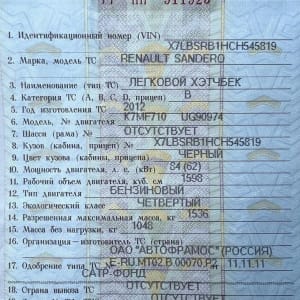 1. Идентификационный номер (VIN)
X7LBSRB1HCH545819
2. Марка, модель ТС RENAULT SANDERO
3. Наименование (тип ТС) ЛЕГКОВОЙ ХЭТЧБЕК
4. Категория ТС (А, В, С, D, прицеп) B
5. Год изготовления ТС 2012
6. Модель, № двигателя K7MF710 UG90974
7. Шасси (рама) № ОТСУТСТВУЕТ
8. Кузов (кабина, прицеп) № X7LBSRB1HCH545819
9. Цвет кузова (кабины, прицепа) ЧЕРНЫЙ
10. Мощность двигателя, л. с. (кВт) 84 (62)
11. Рабочий объем двигателя, куб. см 1598
12. Тип двигателя БЕНЗИНОВЫЙ
13. Экологический класс ЧЕТВЕРТЫЙ
14. Разрешенная максимальная масса, кг 1536
15. Масса без нагрузки, кг 1048
16. Организация – изготовитель ТС (страна)
ОАО "АВТОФРАМОС" (РОССИЯ)
17. Одобрение типа ТС № E-RU.MT02.B.00070.P2 от 11.11.11
САТР-ФОНД
18. Страна вывоза ТС ОТСУТСТВУЕТ